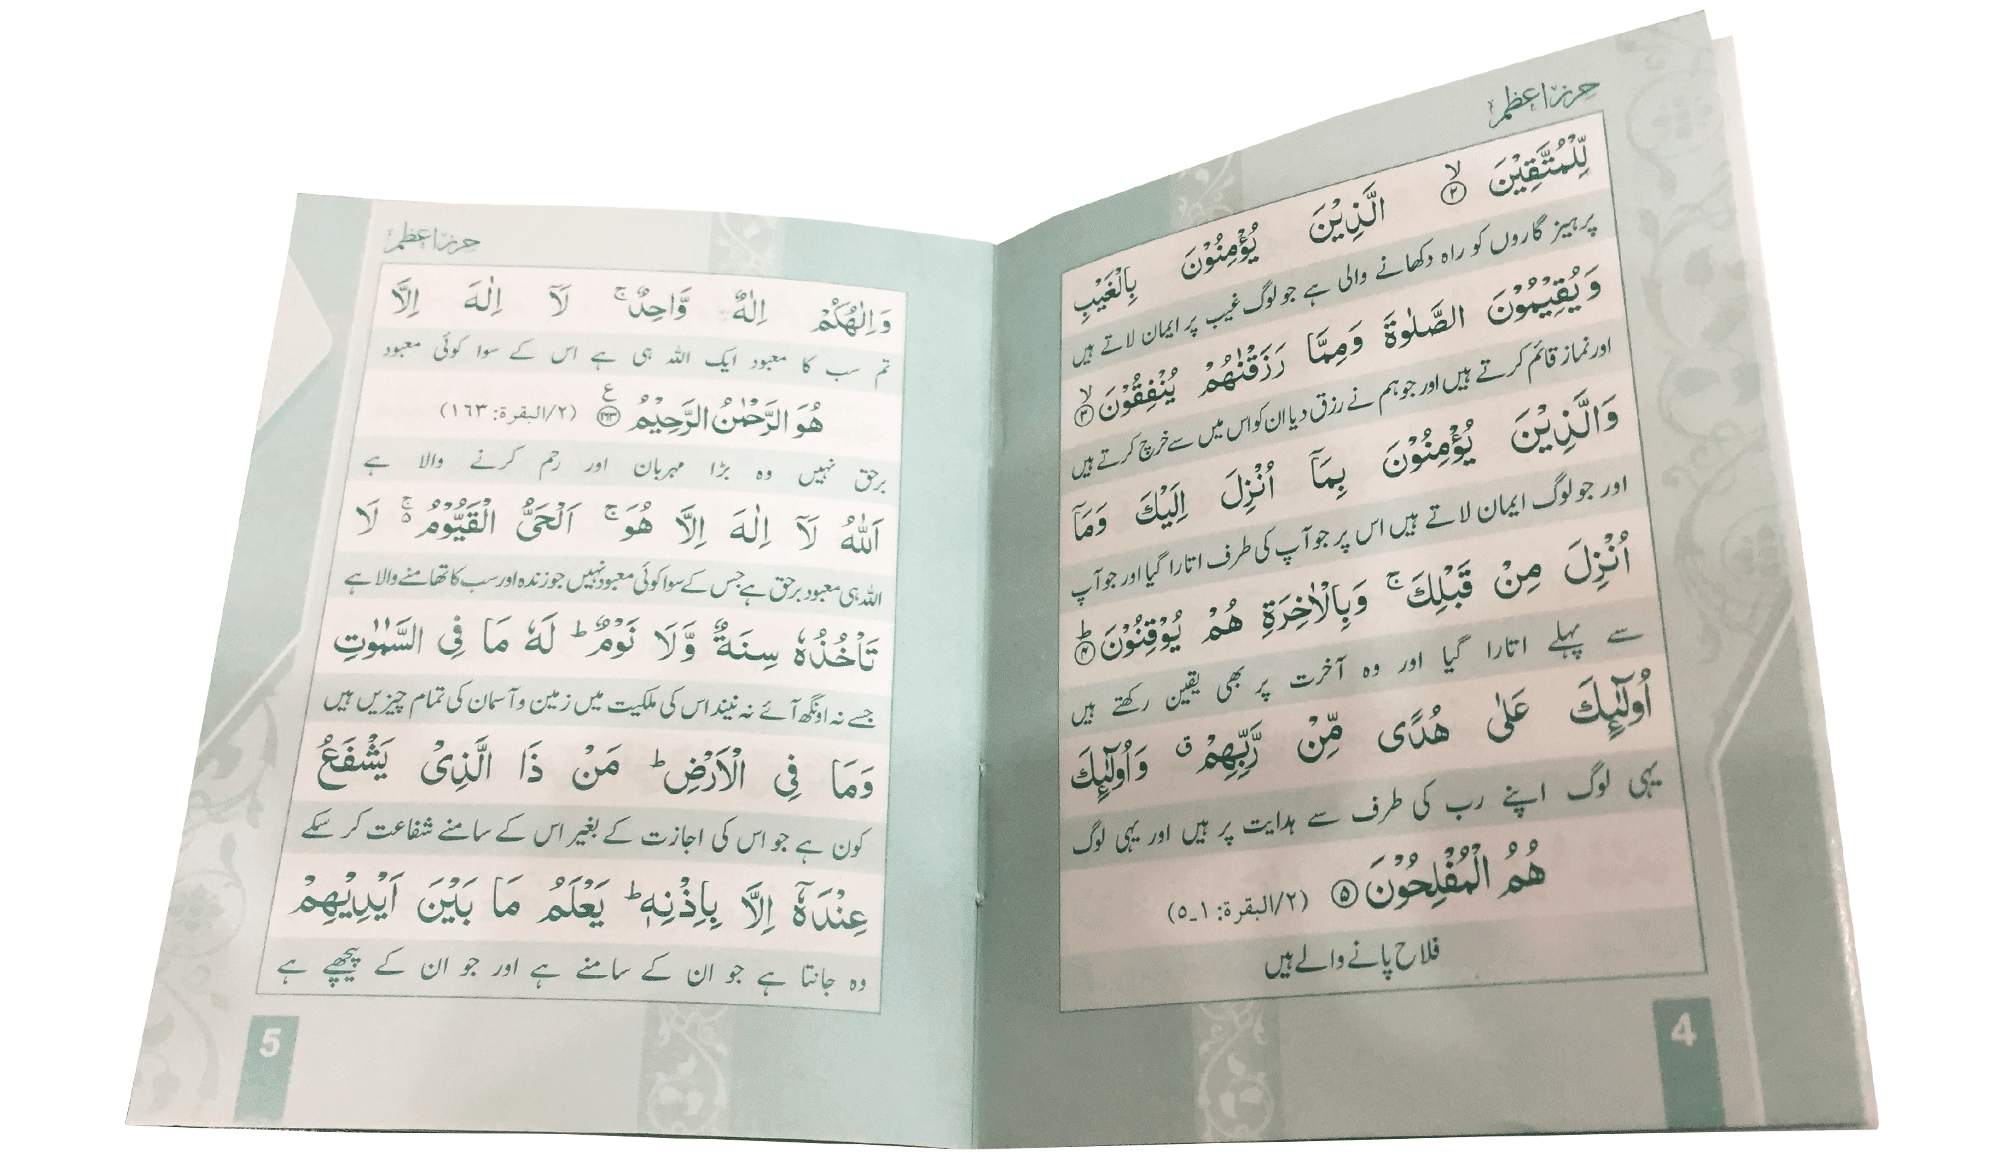 حرز اعظم
لِّلْمُتَّقِيْنَ ۙ﴿۲﴾ الَّذِيْنَ يُؤْمِنُوْنَ بِالْغَيْبِ
پرہیز گاروں کو راہ دکھانے والی ہے جو لوگ غیب پر ایمان لاتے ہیں
وَيُقِيْمُوْنَ الصَّلٰوةَ وَمِمَّا رَزَقْنٰهُمْ يُنْفِقُوْنَ ۙ﴿۳﴾
اور نماز قائم کرتے ہیں اور جو ہم نے رزق دیا ان کو اس میں سے خرچ کرتے ہیں
وَالَّذِيْنَ يُؤْمِنُوْنَ بِمَآ اُنْزِلَ اِلَيْكَ وَمَآ
اور جو لوگ ایمان لاتے ہیں اس پر جو آپ کی طرف اتارا گیا اور جو آپ
اُنْزِلَ مِنْ قَبْلِكَ ۚ وَبِالْاٰخِرَةِ هُمْ يُوْقِنُوْنَ ؕ﴿۴﴾
سے پہلے اتارا گیا اور وہ آخرت پر بھی یقین رکھتے ہیں
اُولٰٓئِكَ عَلٰى هُدًى مِّنْ رَّبِّهِمْ ۗ وَاُولٰٓئِكَ
یہی لوگ اپنے رب کی طرف سے ہدایت پر ہیں اور یہی لوگ
هُمُ الْمُفْلِحُوْنَ ﴿۵﴾ (۲/البقرة: ۱۔۵)
فلاح پانے والے ہیں
4
حرز اعظم
وَاِلٰهُكُمْ اِلٰهٌ وَّاحِدٌ ۚ لَآ اِلٰهَ اِلَّا
تم سب کا معبود ایک اللہ ہی ہے اس کے سوا کوئی معبود
هُوَ الرَّحْمٰنُ الرَّحِيْمُ ﴿۱۶۳﴾ ع (۲/البقرة: ۱۶۳)
برحق نہیں وہ بڑا مہربان اور رحم کرنے والا ہے
اَللّٰهُ لَآ اِلٰهَ اِلَّا هُوَ ۚ اَلْحَىُّ الْقَيُّوْمُ ۚ لَا
اللہ ہی معبود برحق ہے جس کے سوا کوئی معبود نہیں جو زندہ اور سب کا تھامنے والا ہے
تَاْخُذُهٗ سِنَةٌ وَّلَا نَوْمٌ ؕ لَهٗ مَا فِى السَّمٰوٰتِ
جسے نہ اونگھ آئے نہ نیند اس کی ملکیت میں زمین و آسمان کی تمام چیزیں ہیں
وَمَا فِى الْاَرْضِ ؕ مَنْ ذَا الَّذِىْ يَشْفَعُ
کون ہے جو اس کی اجازت کے بغیر اس کے سامنے شفاعت کر سکے
عِنْدَهٗٓ اِلَّا بِاِذْنِهٖ ؕ يَعْلَمُ مَا بَيْنَ اَيْدِيْهِمْ
وہ جانتا ہے جو ان کے سامنے ہے اور جو ان کے پیچھے ہے
5